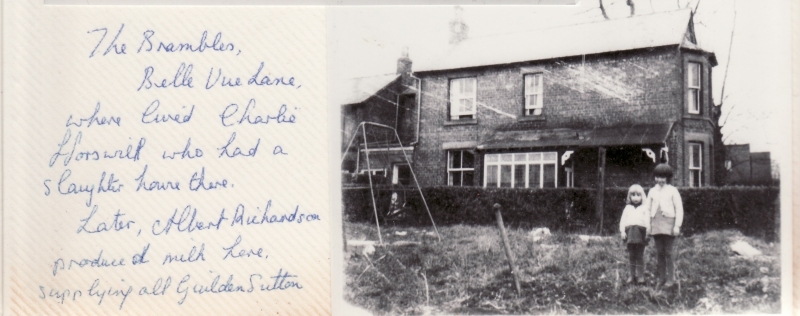 The Brambles,
Belle Vue Lane,
where lived Charlie
Horswill who had a
slaughter house there.
Later, Albert Richardson
produced milk here,
supplying all Guilden Sutton